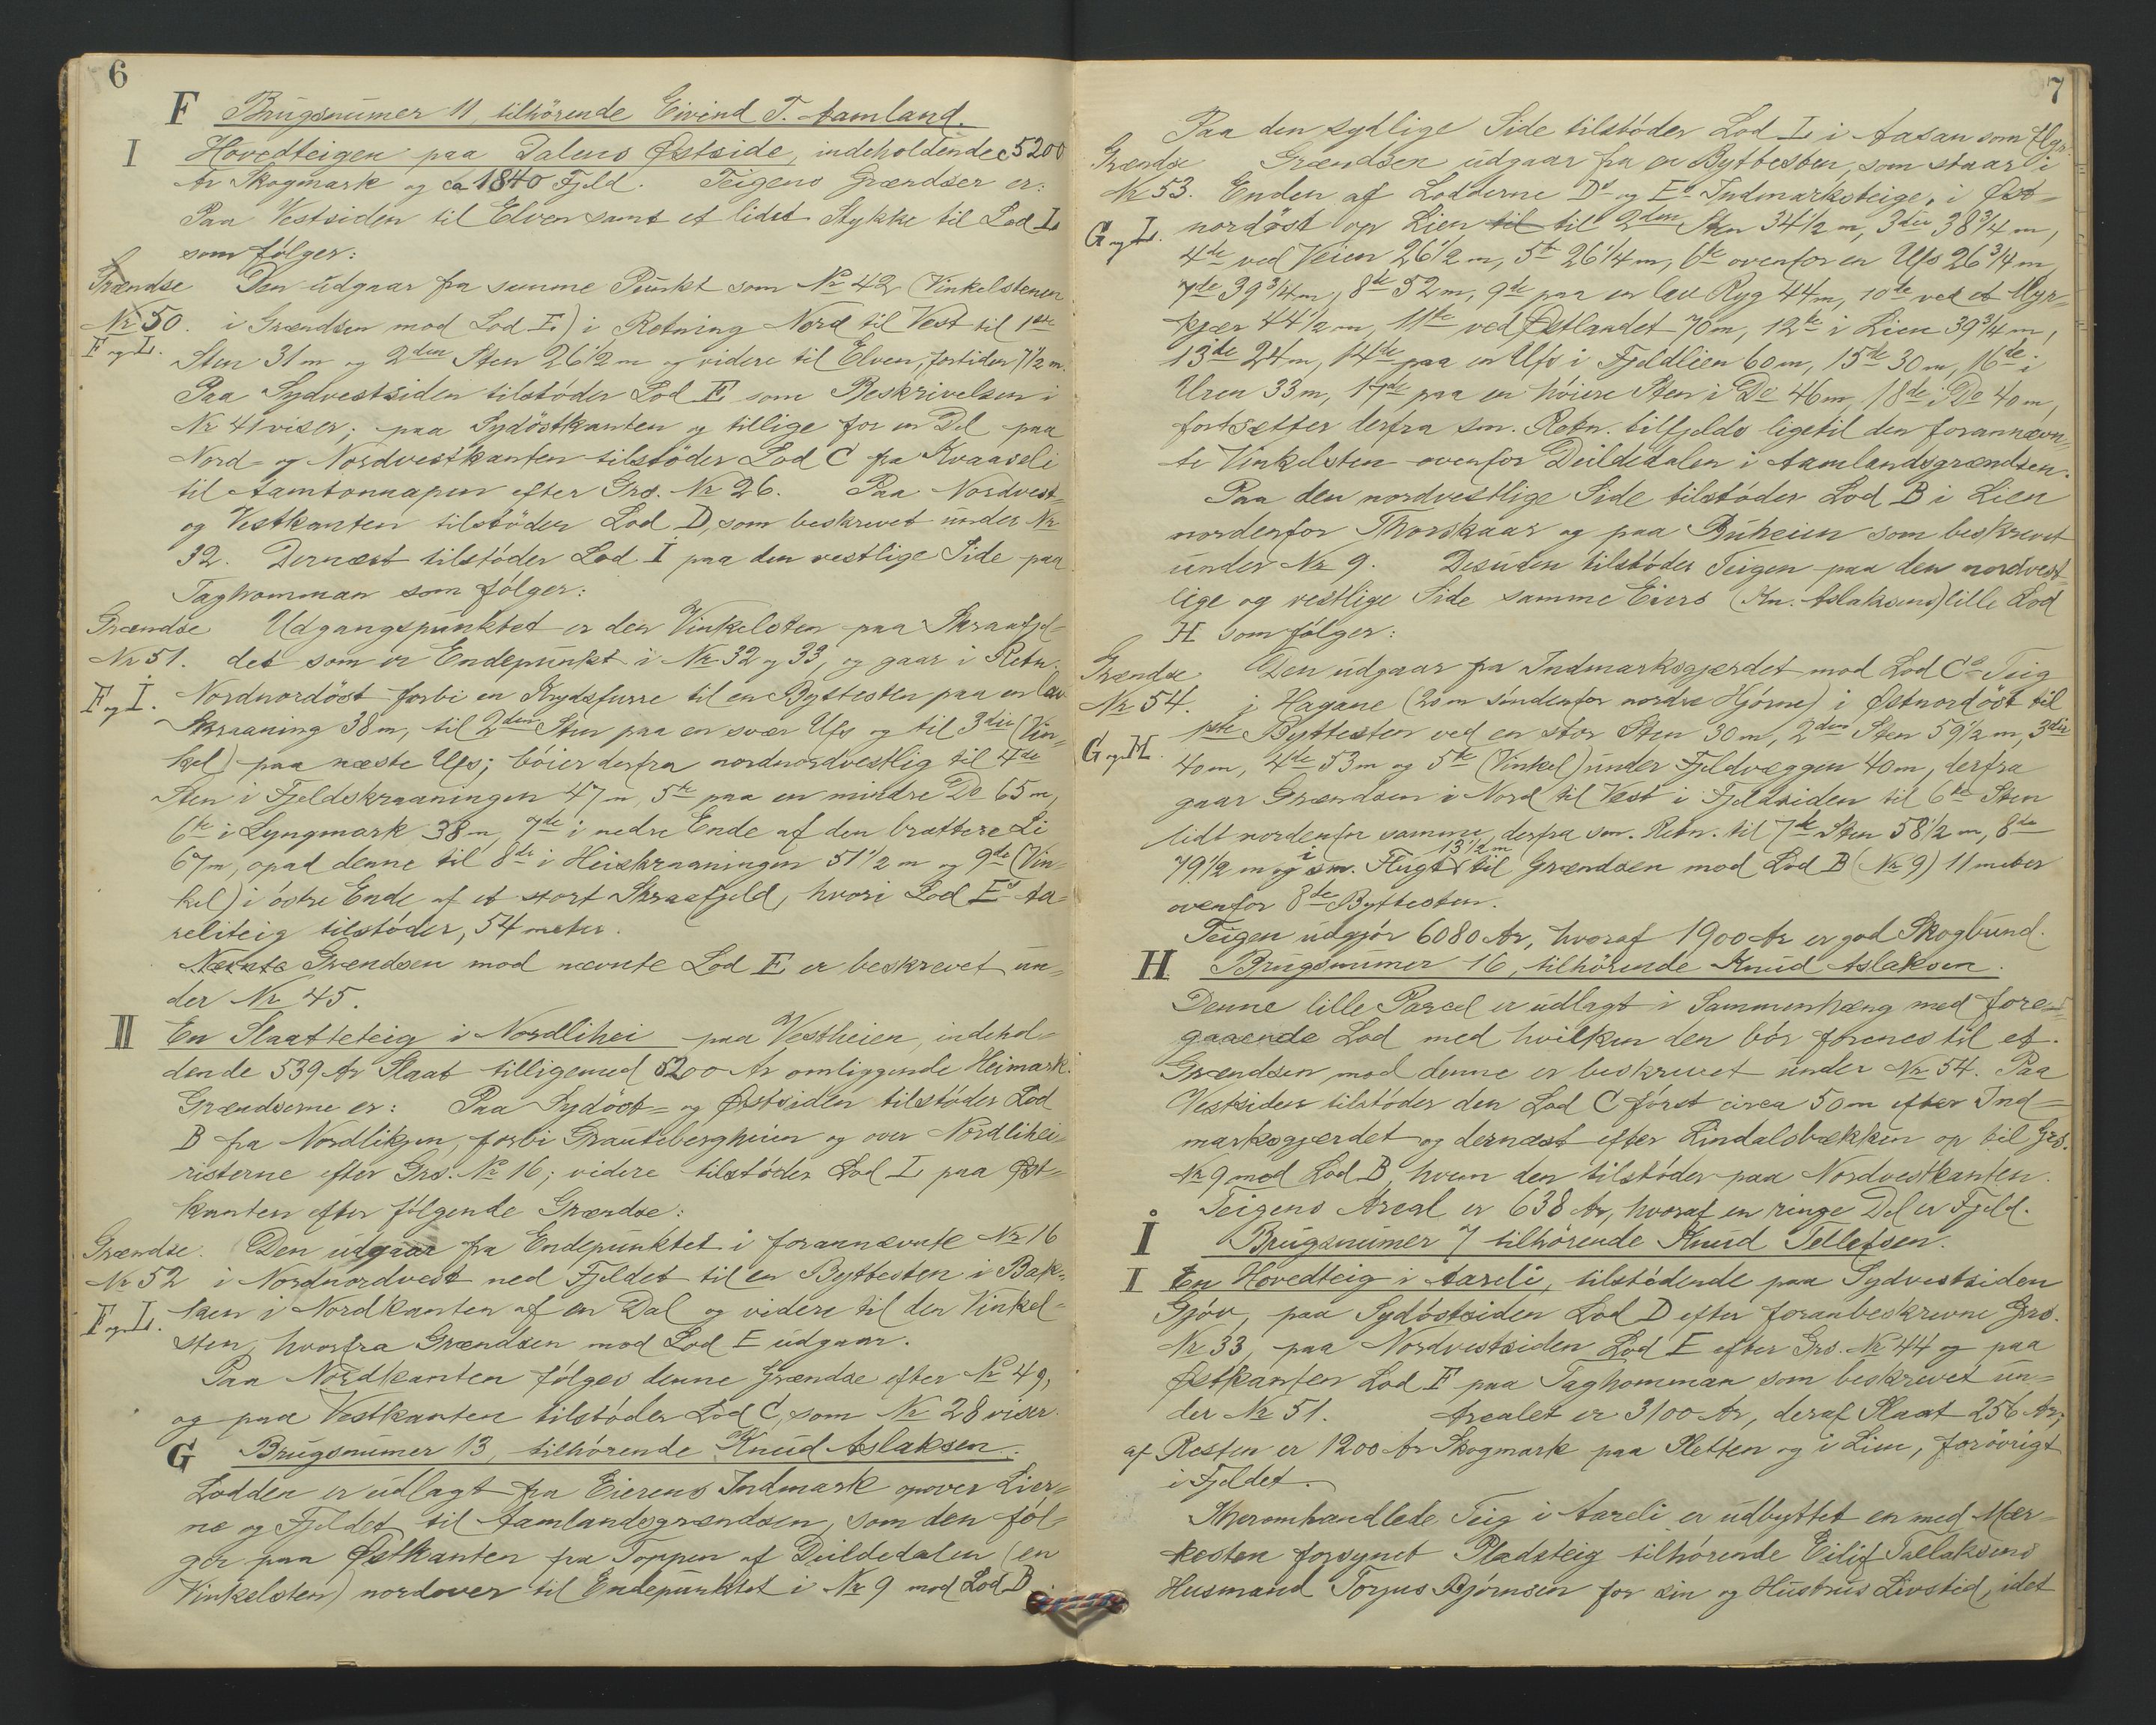 6
F Brugsnumer 11, tilhörende Eivind T. Aamland.
I Hovedteigen paa Dalens Østside, indeholdende c 5200
Ar Skogmark og ca 1840 Fjeld. Teigens Grændser er:
Paa Vestsiden til Elven samt et lidet Stykke til Lod L
som fölger:
Grændse Den udgaar fra samme Punkt som No 42 (Vinkelstenen
Nr 50. i Grændsen mod Lod E) i Retning Nord til Vest til 1ste
F og L. Sten 31 m og 2den Sten 26 1/2 m og videre til Elven, fortiden 7 1/2 m.
Paa Sydvestsiden tilstöder Lod E som Beskrivelsen i
Nr 41 viser; paa Sydöstkanten og tillige for en Del paa
Nord- og Nordvestkanten tilstöder Lod C fra Kvaaseli
til Aamtonnapen efter Grs. Nr 26. Paa Nordvest-
og Vestkanten tilstöder Lod D, som beskrevet under Nr
32. Dernæst tilstöder Lod I paa den vestlige Side paa
Taghomman som fölger:
Grændse Udgangspunktet er den Vinkelsten paa Skraafjel-
Nr 51. det som er Endepunkt i Nr 32 og 33, og gaar i Retn.
F og I. Nordnordöst forbi en Krydsfurre til en Byttesten paa en lav
Skraaning 38 m, til 2den Sten paa en svær Ufs og til 3die (Vin-
kel) paa næste Ufs; böier derfra nordnordvestlig til 4de
Sten i Fjeldskraaningen 47 m, 5te paa en mindre Do 65 m,
6te i Lyngmark 38 m, 7de i nedre Ende af den brattere Li
67 m, opad denne til 8de i Heiskraaningen 51 1/2 m og 9de (Vin-
kel) i östre Ende af et stort Skraafjeld, hvori Lod Es Aa-
reliteig tilstöder, 54 meter.
Nævnte Grændsen mod nævnte Lod E er beskrevet un-
der Nr 45.
II En Slaatteteig i Nordlihei paa Vestheien, indehol-
dende 539 Ar Slaat tilligemed 5200 Ar omliggende Heimark.
Grændserne er: Paa Sydöst- og Østsiden tilstöder Lod
B fra Nordlikyen, forbi Grautebergheien og over Nordlihei-
risterne efter Grs. No 16; videre tilstöder Lod L paa Øst-
kanten efter fölgende Grændse:
Grændse. Den udgaar fra Endepunktet i forannævnte Nr 16
Nr 52 i Nordnordvest ned Fjeldet til en Byttesten i Bak-
F og L. ken i Nordkanten af en Dal og videre til den Vinkel-
sten, hvorfra Grændsen mod Lod E udgaar.
Paa Nordkanten fölges denne Grændse efter No 49,
og paa Vestkanten tilstöder Lod C, som Nr 28 viser.
G Brugsnumer 13, tilhörende Knud Aslaksen.
Lodden er udlagt fra Eierens Indmark opover Lier-
ne og Fjeldet til Aamlandsgrændsen, som den föl-
ger paa Østkanten fra Toppen af Deildedalen (en
Vinkelsten) nordover til Endepunktet i Nr 9 mod Lod B.
7
Paa den sydlige Side tilstöder Lod L i Aasan som fölger:
Grændse Grændsen udgaar fra en Byttesten, som staar i
Nr 53. Enden af Lodderne Ds og Es Indmarksteige, i Øst-
G og L. nordöst op Lien til til 2den Sten 34 1/2 m, 3die 38 3/4 m,
4de ved Veien 26 1/2 m, 5te 26 1/4 m, 6te ovenfor en Ufs 26 3/4 m,
7de 39 3/4 m, 8de 52 m, 9de paa en lav Ryg 44 m, 10de ved et Myr-
kjær 44 1/2 m, 11te ved Østlandet 70 m, 12te i Lien 39 3/4 m,
13de 24 m, 14de paa en Ufs i Fjeldlien 60 m, 15de 30 m, 16de i
Uren 33 m, 17de paa en höiere Sten i Do 46 m, 18de i Do 40 m,
fortsætter derfra sm. Retn. tilfjelds ligetil den forannævn-
te Vinkelsten ovenfor Deildedalen i Aamlandsgrændsen.
Paa den nordvestlige Side tilstöder Lod B i Lien
nordenfor Thorskaar og paa Buheien som beskrevet
under Nr 9. Desuden tilstöder Teigen paa den nordvest-
lige og vestlige Side samme Eiers (Kn. Aslaksens) lille Lod
H som fölger:
Grændse Den udgaar fra Indmarksgjærdet mod Lod Cs Teig
Nr 54. i Hagane (20 m söndenfor nordre Hjörne) i Østnordöst til
G og H. 1ste Byttesten ved en stor Sten 30 m, 2den Sten 59 1/2 m, 3die
40 m, 4de 53 m og 5te (Vinkel) under Fjeldvæggen 40 m, derfra
gaar Grændsen i Nord til Vest i Fjeldsiden til 6te Sten
lidt nordenfor samme, derfra sm. Retn. til 7de Sten 58 1/2 m, 8de
79 1/2 m og i sm. Flugt 13 1/2 m til Grændsen mod Lod B (Nr 9) 11 meter
ovenfor 8de Byttesten.
Teigen udgjör 6080 Ar, hvoraf 1900 Ar er god Skogbund.
H Brugsnumer 16, tilhörende Knud Aslaksen.
Denne lille Parcel er udlagt i Sammenhæng med fore-
gaaende Lod med hvilken den bör forenes til et.
Grændsen mod denne er beskrevet under Nr 54. Paa
Vestsiden tilstöder den Lod C först circa 50 m efter Ind-
marksgjærdet og dernæst efter Lindalsbækken op til Grs.
Nr 9 mod Lod B, hvem den tilstöder paa Nordvestkanten.
Teigens Areal er 638 Ar, hvoraf en ringe Del er Fjeld.
I Brugsnumer 7 tilhörende Knud Tellefsen.
I En Hovedteig i Aareli, tilstödende paa Sydvestsiden
Gjöv, paa Sydöstsiden Lod D efter foranbeskrevne Grs.
Nr 33, paa Nordvestsiden Lod E efter Grs. Nr 44 og paa
Østkanten Lod F paa Taghomman som beskrevet un-
der Nr 51. Arealet er 3100 Ar, deraf Slaat 256 Ar;
af Resten er 1200 Ar Skogmark paa Sletten og i Lien, forövrigt
i Fjeldet.
Af heromhandlede Teig i Aareli er udbyttet en med Mær-
kesten forsynet Pladsteig tilhörende Eilif Tallaksens
Husmand Torjus Bjørnsen for sin og Hustrus Livstid, idet